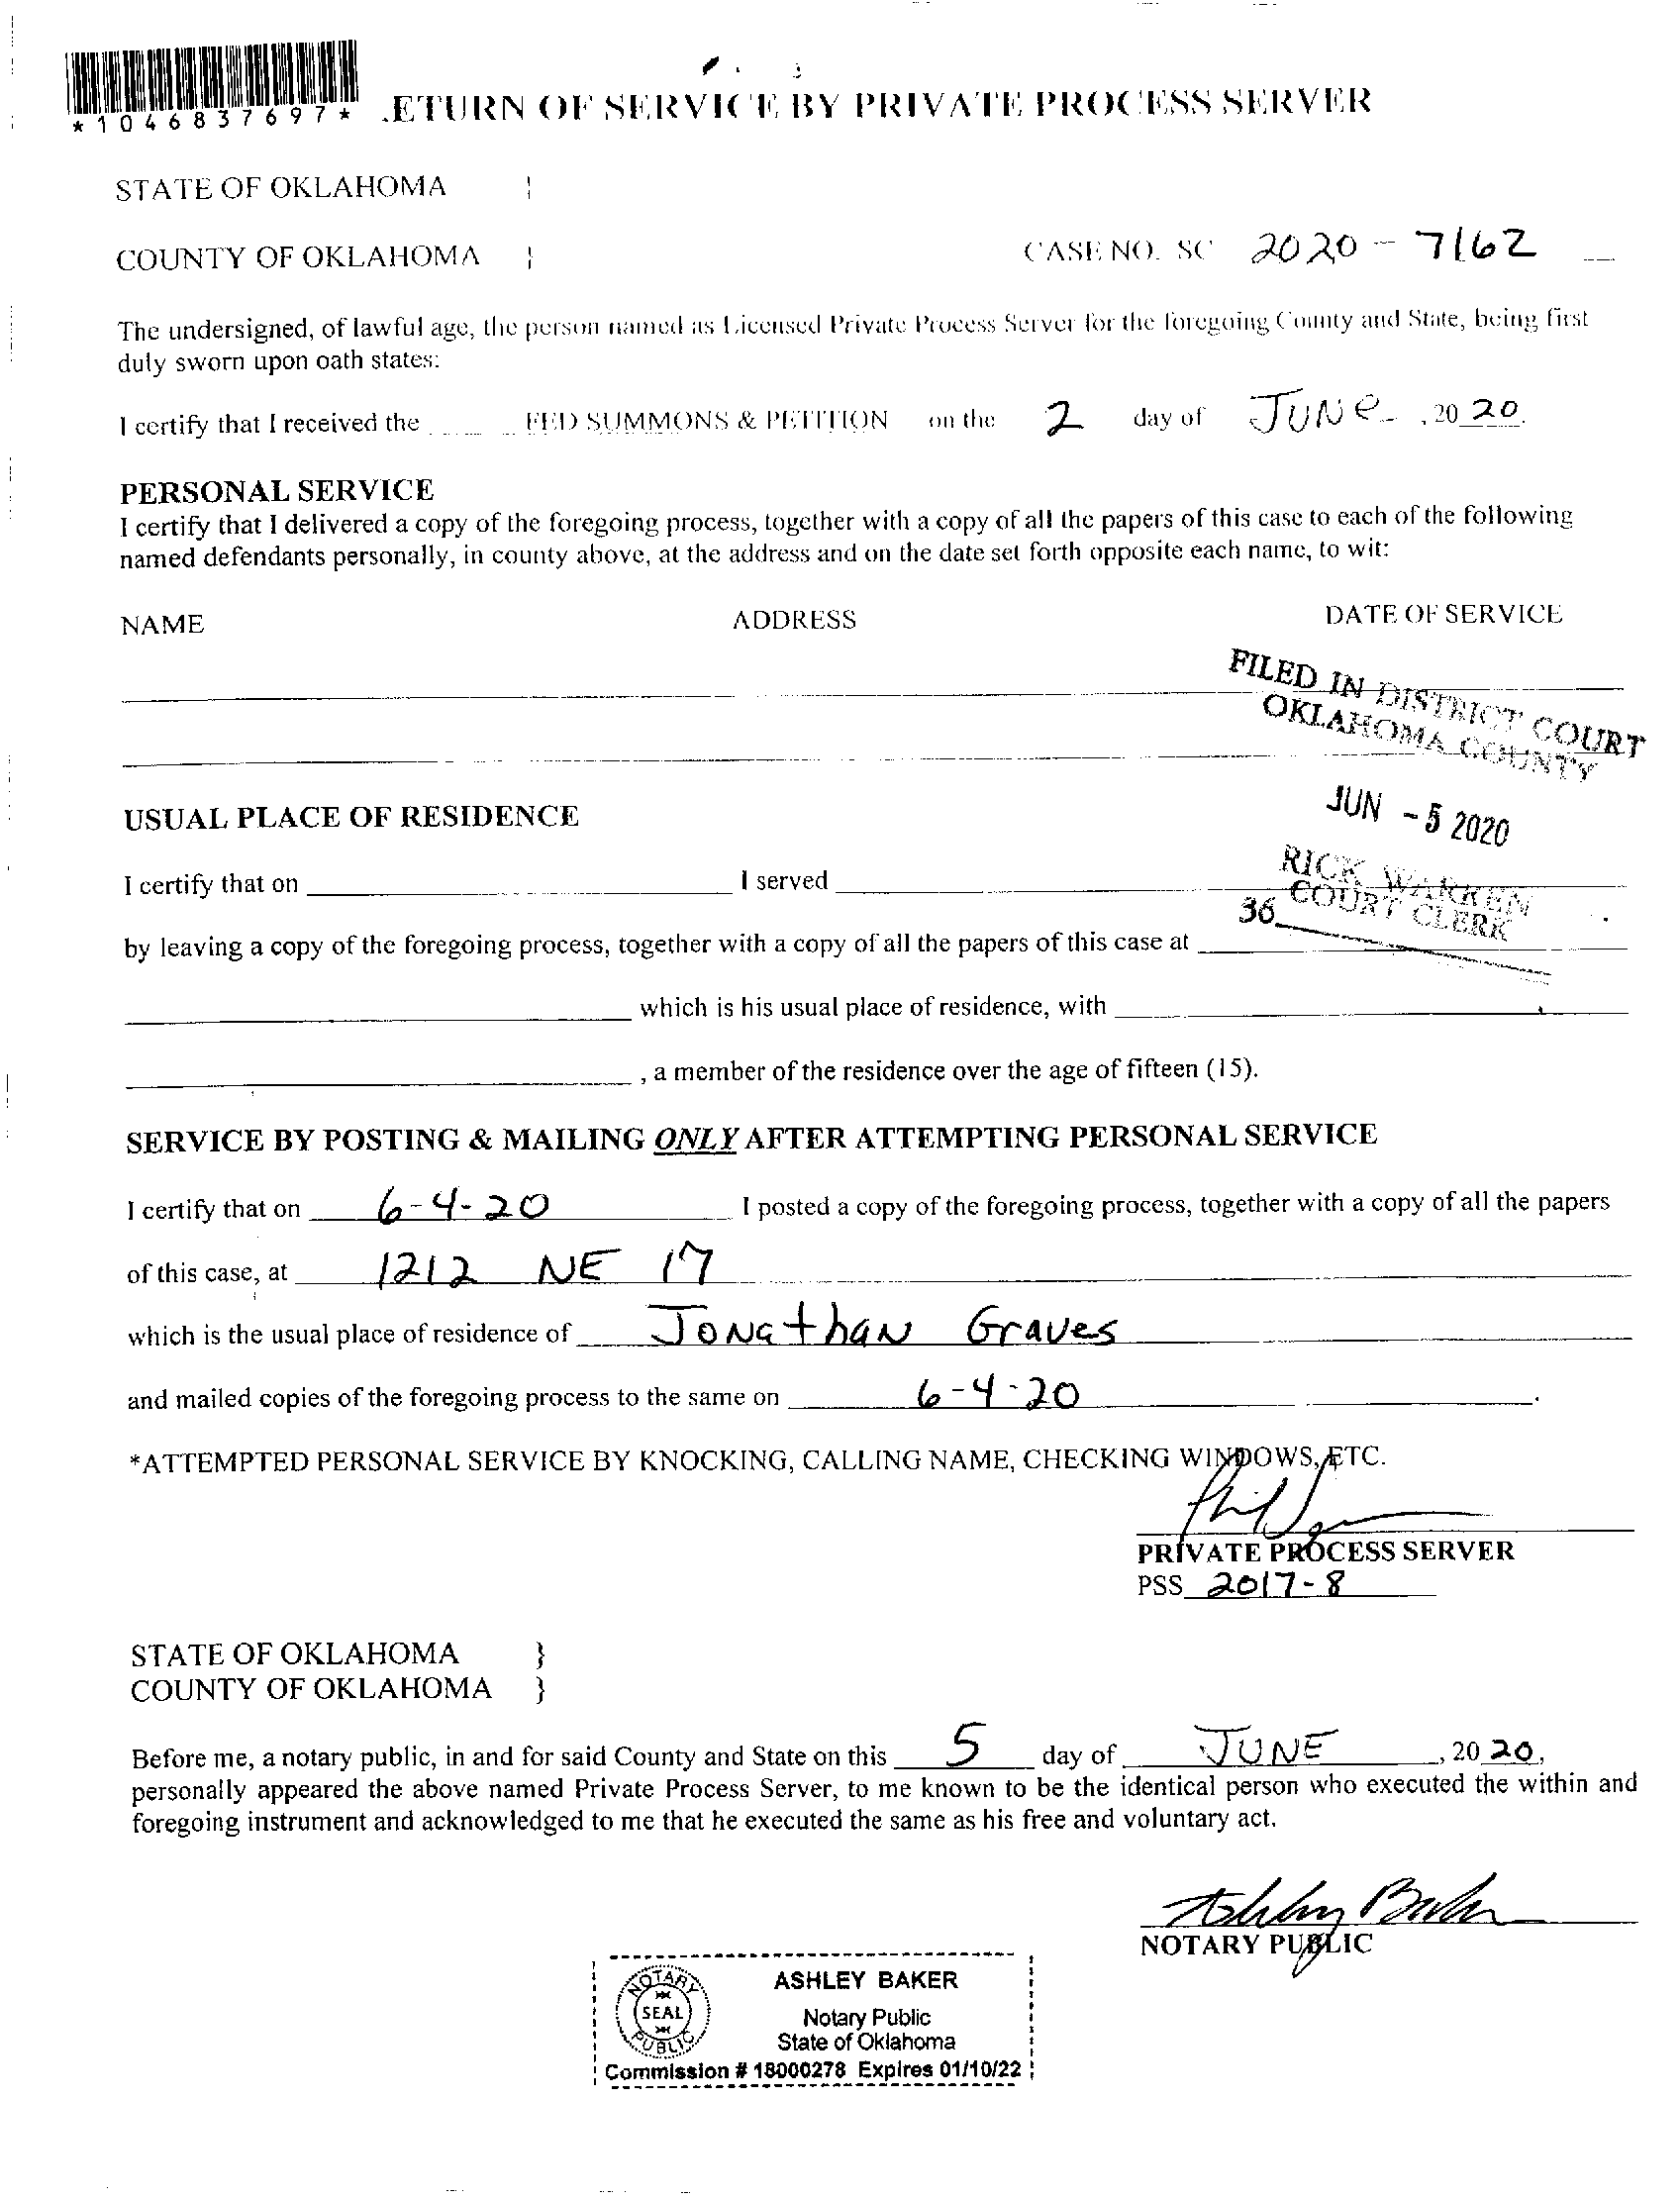 *1046837697*
.ETURN OF SERVICE BY PRIVATE PROCESS SERVER
STATE OF OKLAHOMA }
COUNTY OF OKLAHOMA } CASE NO. SC 2020 - 7162
The undersigned, of lawful age, the person named as Licensed Private Process Server for the foregoing County and State, being first
duly sworn upon oath states:
I certify that I received the FED SUMMONS & PETITION on the 2 day of JUNe, 20 20.
PERSONAL SERVICE
I certify that I delivered a copy of the foregoing process, together with a copy of all the papers of this case to each of the following
named defendants personally, in county above, at the address and on the date set forth opposite each name, to wit:
NAME ADDRESS DATE OF SERVICE
FILED IN DISTRICT COURT
OKLAHOMA COUNTY
JUN - 5 2020
RICK WARREN
COURT CLERK
36
USUAL PLACE OF RESIDENCE
I certify that on I served
by leaving a copy of the foregoing process, together with a copy of all the papers of this case at
which is his usual place of residence, with
, a member of the residence over the age of fifteen (15).
SERVICE BY POSTING & MAILING ONLY AFTER ATTEMPTING PERSONAL SERVICE
I certify that on 6-4-20 I posted a copy of the foregoing process, together with a copy of all the papers
of this case, at 1212 NE 17
which is the usual place of residence of Jonathan Graves
and mailed copies of the foregoing process to the same on 6-4-20.
*ATTEMPTED PERSONAL SERVICE BY KNOCKING, CALLING NAME, CHECKING WINDOWS, ETC.
PRIVATE PROCESS SERVER
PSS 2017-8
STATE OF OKLAHOMA }
COUNTY OF OKLAHOMA }
Before me, a notary public, in and for said County and State on this 5 day of JUNE, 20 20,
personally appeared the above named Private Process Server, to me known to be the identical person who executed the within and
foregoing instrument and acknowledged to me that he executed the same as his free and voluntary act.
Ashley Baker
NOTARY PUBLIC
NOTARY
SEAL
PUBLIC
ASHLEY BAKER
Notary Public
State of Oklahoma
Commission # 18000278 Expires 01/10/22